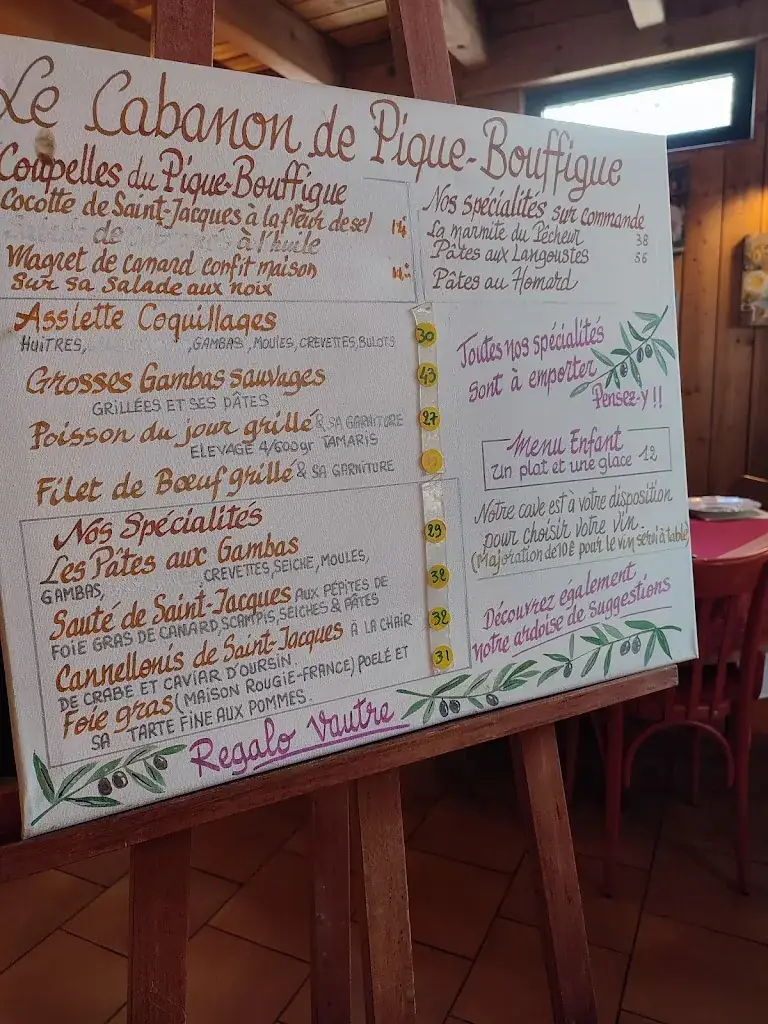 Le Cabanon de Pique-Bouffigue
Coupelles du Pique-Bouffigue
Cocotte de Saint-Jacques à la fleur de sel
de à l'huile
Magret de canard confit maison
sur sa salade aux noix
Nos spécialités sur commande
La marmite du Pêcheur 38
Pâtes aux Langoustes 56
Pâtes au Homard
Assiette Coquillages 30
HUÎTRES, ,GAMBAS, MOULES, CREVETTES, BULOTS
Grosses Gambas sauvages 43
GRILLÉES ET SES PÂTES
Poisson du jour grillé & SA GARNITURE 27
ELEVAGE 4/600gr TAMARIS
Filet de Bœuf grillé & SA GARNITURE
Toutes nos spécialités
sont à emporter
Pensez-y !!
Menu Enfant
Un plat et une glace 12
Nos Spécialités
Les Pâtes aux Gambas 29
GAMBAS, CREVETTES, SEICHE, MOULES,
Sauté de Saint-Jacques AUX PÉPITES DE
FOIE GRAS DE CANARD, SCAMPIS, SEICHES & PÂTES
Cannellonis de Saint-Jacques À LA CHAIR
DE CRABE ET CAVIAR D'OURSIN.
Foie gras (MAISON ROUGIE-FRANCE) POELÉ ET 31
SA TARTE FINE AUX POMMES.
Notre cave est à votre disposition
pour choisir votre vin.
(Majoration de 10€ pour le vin servi à table)
Découvrez également
notre ardoise de suggestions
Regalo Vautre